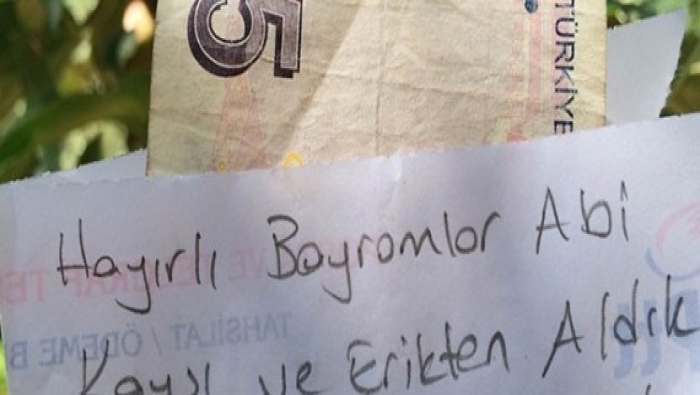 5
TÜRKİYE
Hayırlı Bayramlar Abi
Kayısı ve Erikten Aldık
TAHSİLAT / ÖDEME B